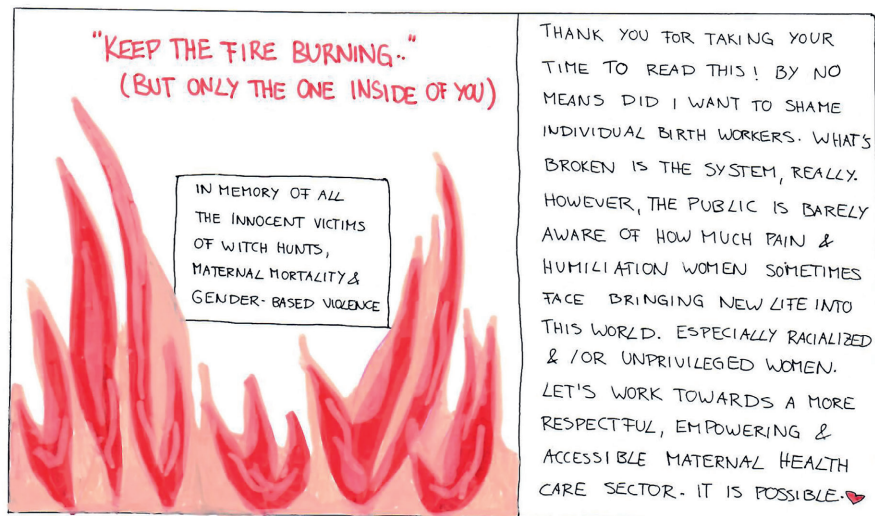 "KEEP THE FIRE BURNING.."
(BUT ONLY THE ONE INSIDE OF YOU)
IN MEMORY OF ALL
THE INNOCENT VICTIMS
OF WITCH HUNTS,
MATERNAL MORTALITY &
GENDER-BASED VIOLENCE
THANK YOU FOR TAKING YOUR
TIME TO READ THIS! BY NO
MEANS DID I WANT TO SHAME
INDIVIDUAL BIRTH WORKERS. WHAT'S
BROKEN IS THE SYSTEM, REALLY.
HOWEVER, THE PUBLIC IS BARELY
AWARE OF HOW MUCH PAIN &
HUMILIATION WOMEN SOMETIMES
FACE BRINGING NEW LIFE INTO
THIS WORLD. ESPECIALLY RACIALIZED
& /OR UNPRIVILEGED WOMEN.
LET'S WORK TOWARDS A MORE
RESPECTFUL, EMPOWERING &
ACCESSIBLE MATERNAL HEALTH
CARE SECTOR. IT IS POSSIBLE.